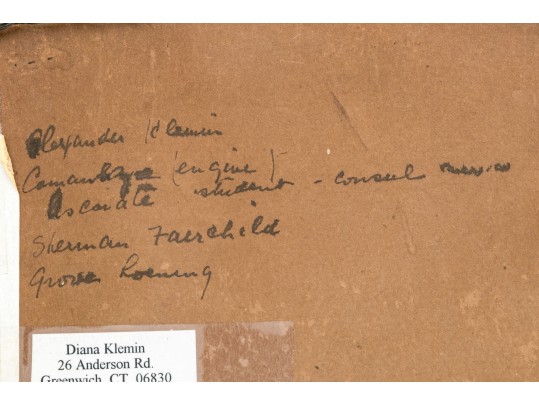 Alexander Klemin
(engine)
Escarate student - consul Mexico
Sherman Fairchild
Grover Loening
Diana Klemin
26 Anderson Rd.
Greenwich, CT 06830